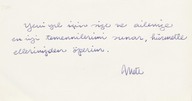 Yeni yıl için size ve ailenize
en iyi temennilerimi sunar, hürmetle
ellerinizden öperim.